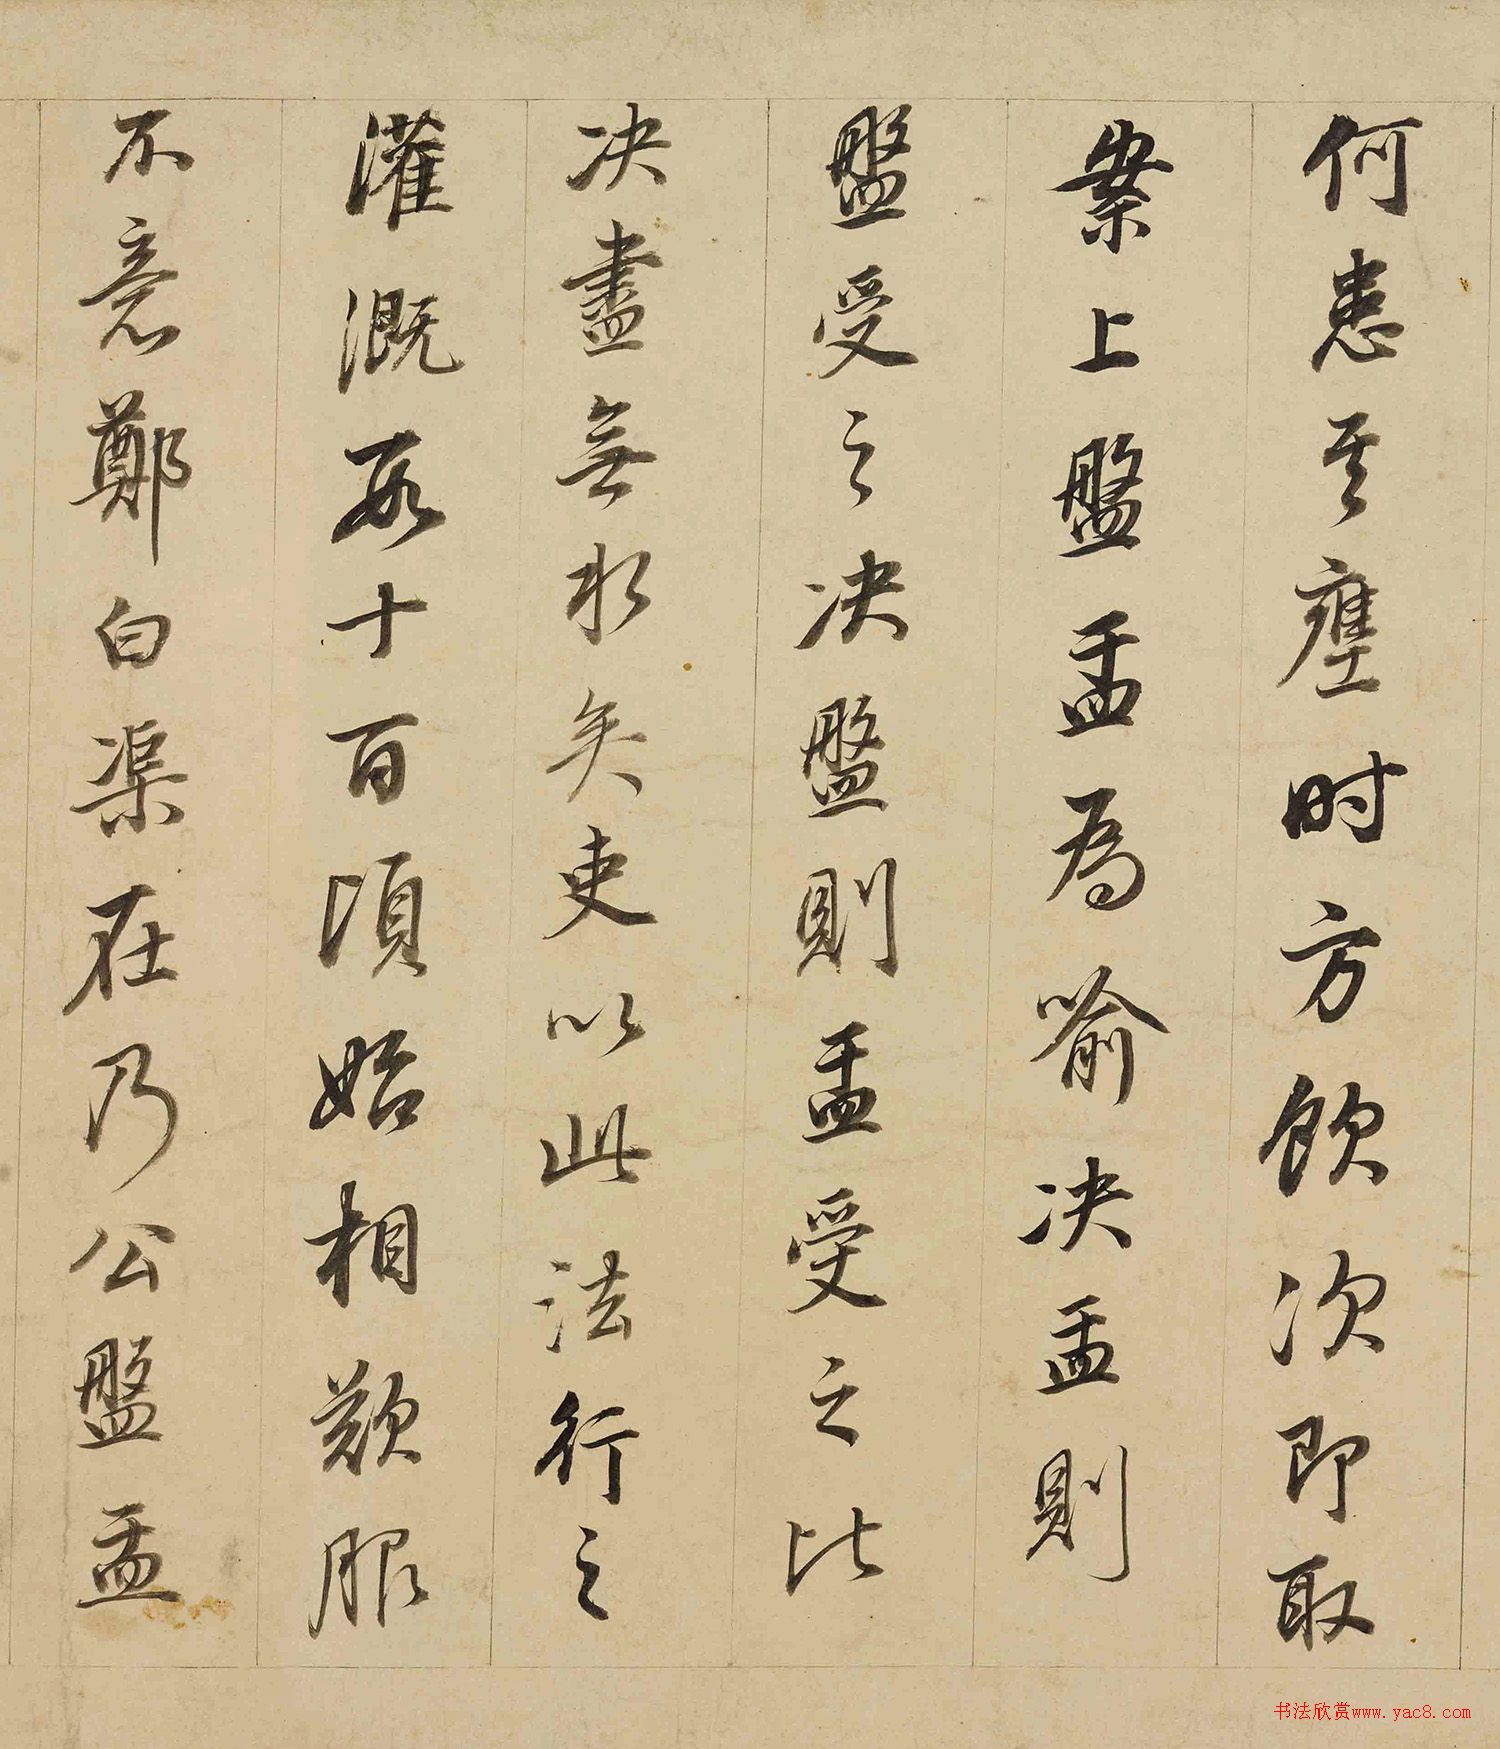 何患其壅时方飲次即取
案上盤盂為喻决盂則
盤受之决盤則盂受之比
决盡無水矣吏以此法行之
灌溉数十百頃始相歎服
不意鄭白渠在乃公盤盂
书法欣赏www.yac8.com